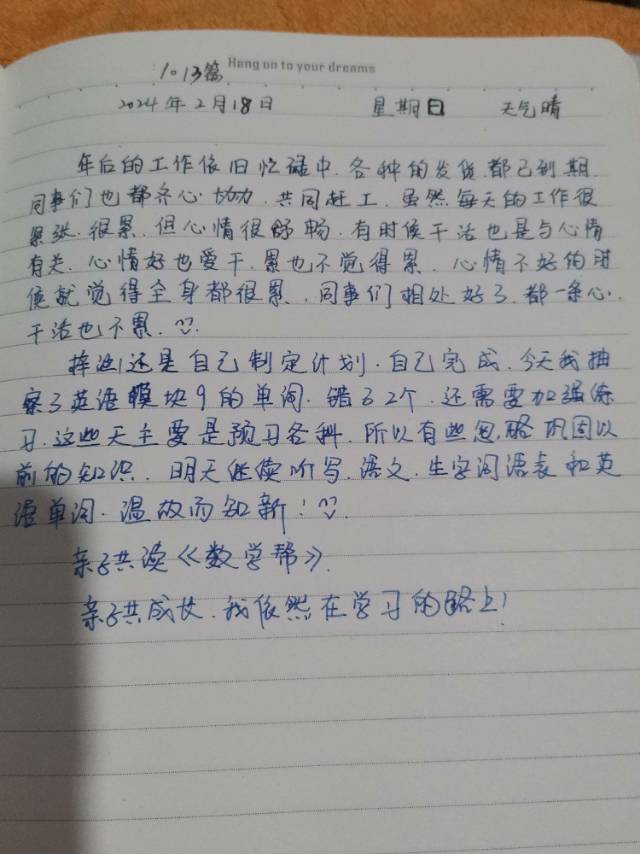 Hang on to your dreams
1013篇
2024年2月18日 星期日 天气晴
年后的工作依旧忙碌中.各种的发货都已到期.
同事们也都齐心协力.共同赶工.虽然每天的工作很
紧张.很累.但心情很舒畅.有时候干活也是与心情
有关.心情好也爱干.累也不觉得累.心情不好的时
候就觉得全身都很累.同事们相处好了.都一条心.
干活也不累.
还是自己制定计划.自己完成.今天我抽
察了英语模块9的单词.错了2个.还需要加强练
习.这些天主要是预习各科.所以有些忽略巩固以
前的知识.明天继续听写.语文.生字词语表和英
语单词.温故而知新!
亲子共读《数学帮》.
亲子共成长.我依然在学习的路上!